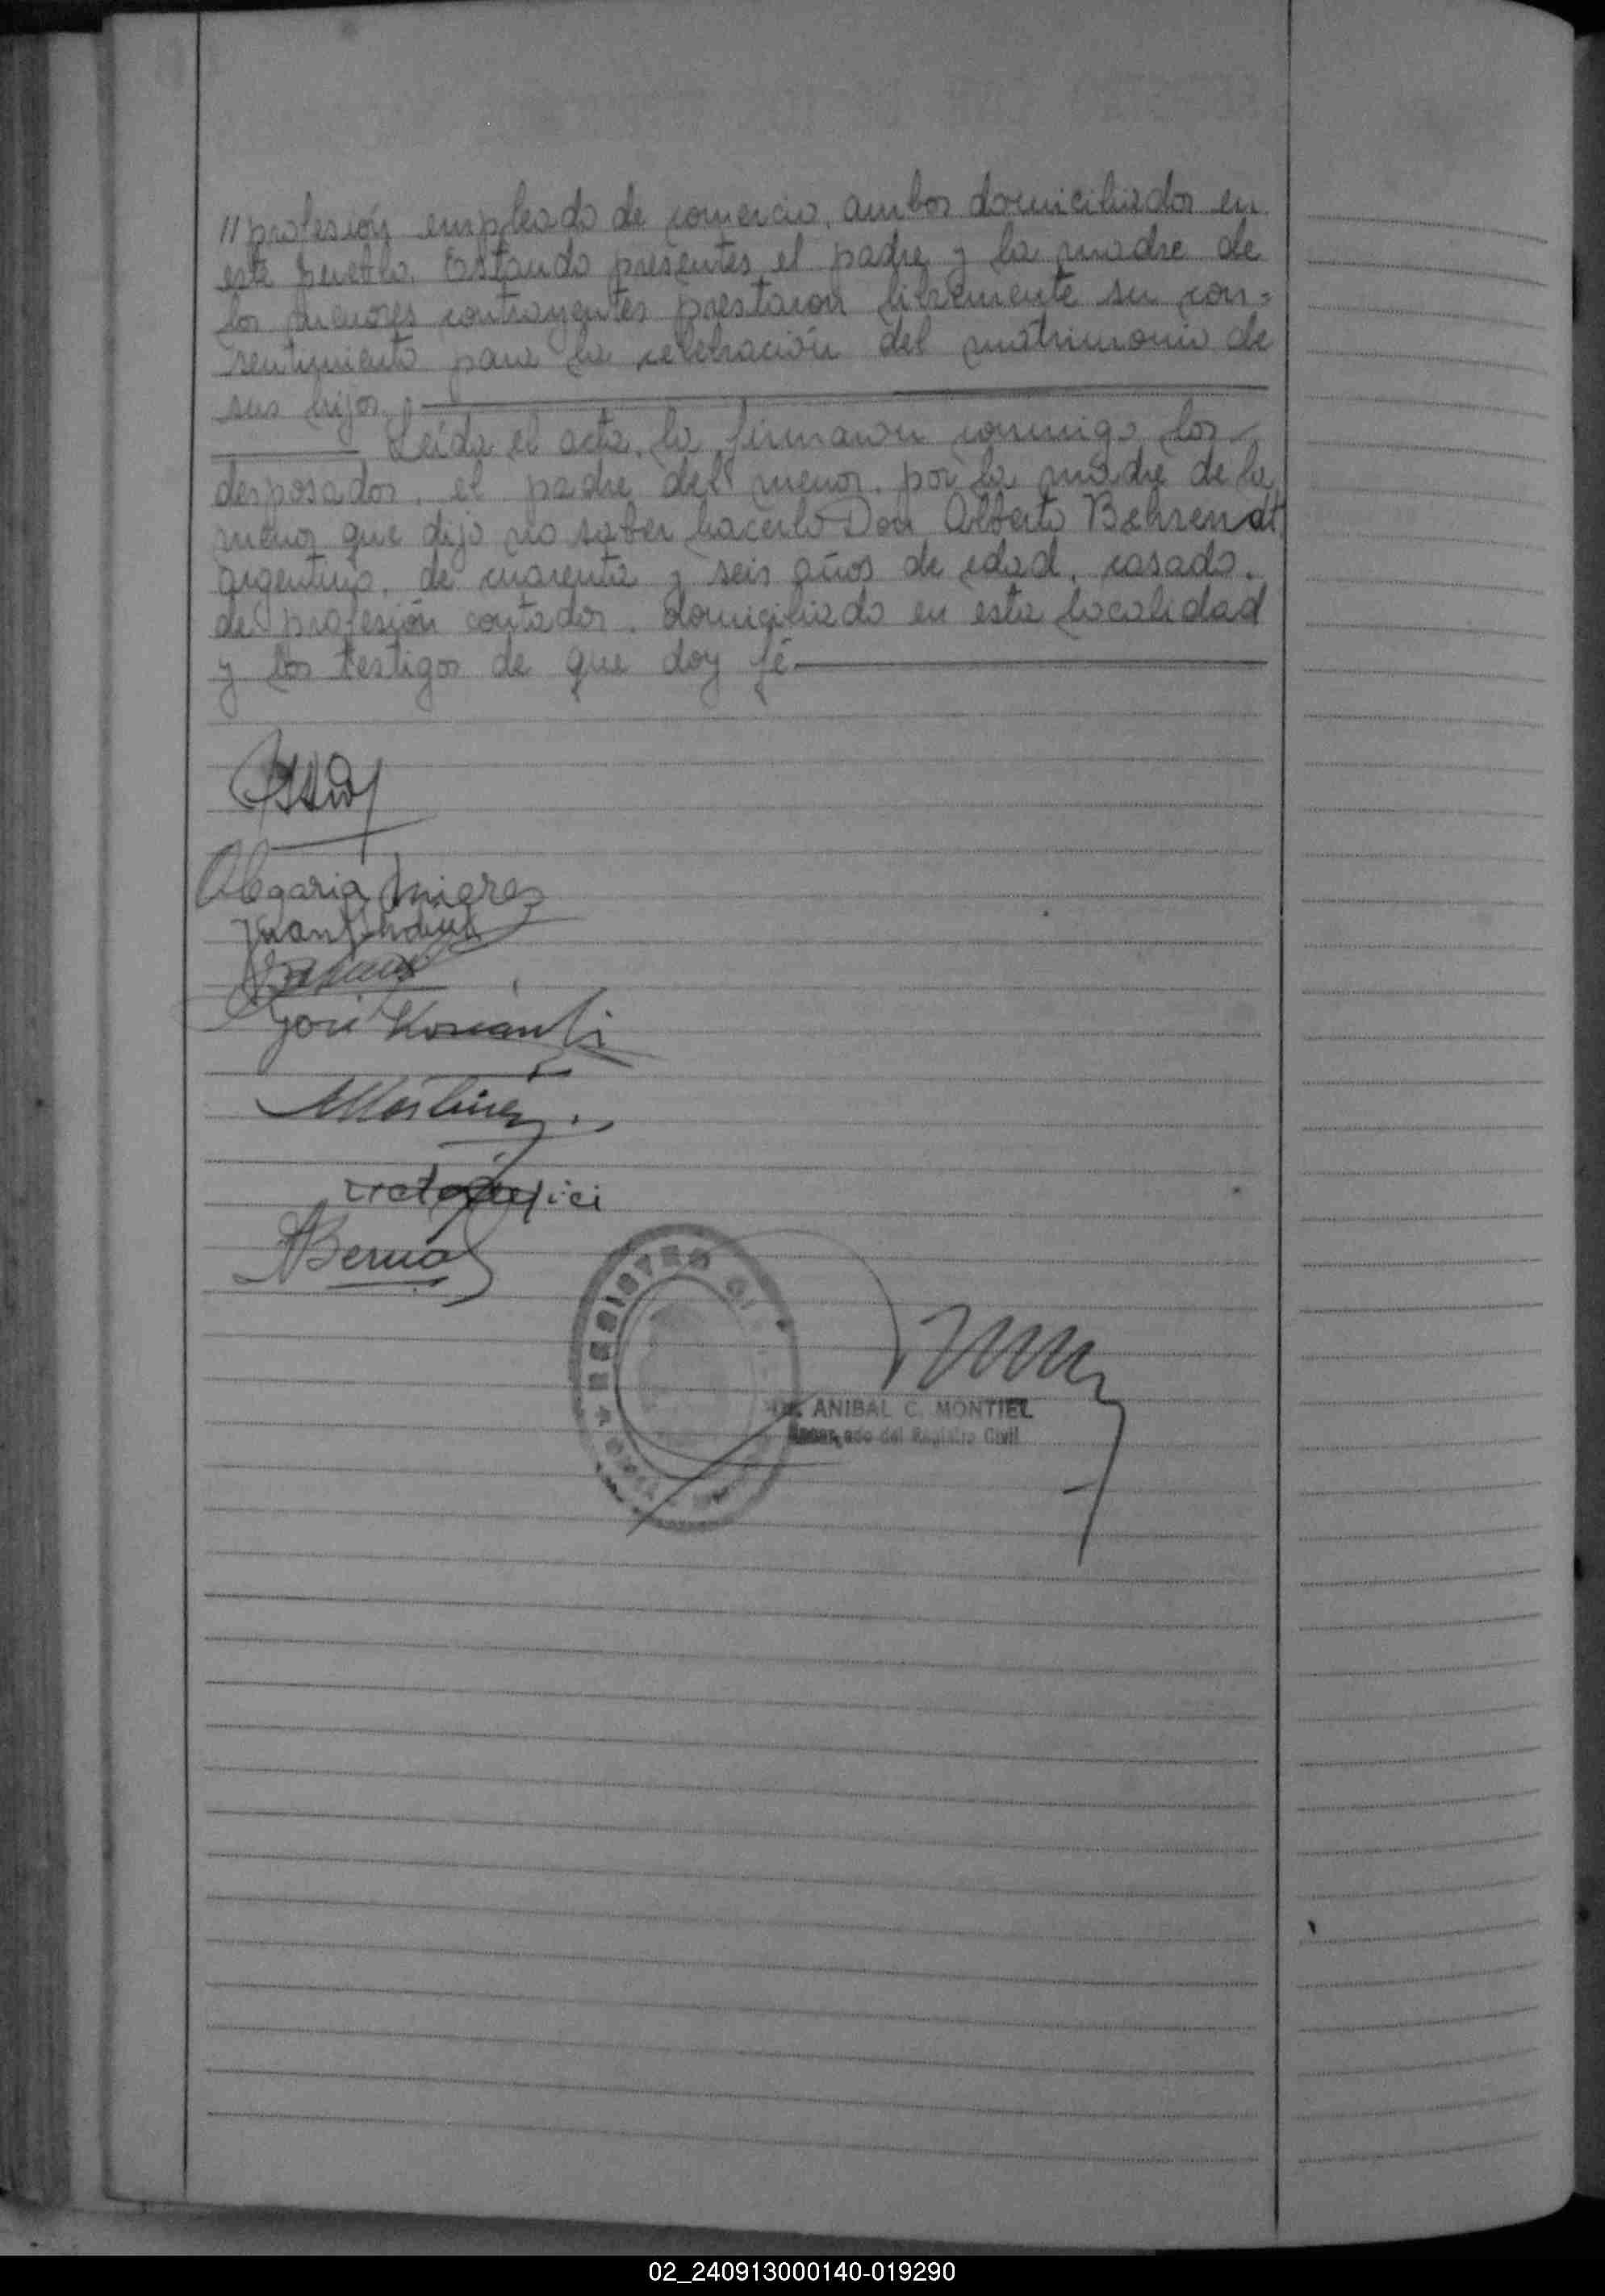 // profesión empleado de comercio, ambos domiciliados en
este pueblo. Estando presentes el padre y la madre de
los menores contrayentes prestaron libremente su con=
sentimiento para la celebración del matrimonio de
sus hijos.
Leída el acta, la firmaron conmigo los
desposados, el padre del menor, por la madre de la
menor que dijo no saber hacerlo Don Alberto Behrendt,
argentino, de cuarenta y seis años de edad, casado,
de profesión contador, domiciliado en esta localidad
y los testigos de que doy fé
Juan
José
ABernal
REGISTRO
ANIBAL C. MONTIEL
Encargado del Registro Civil
02_240913000140-019290